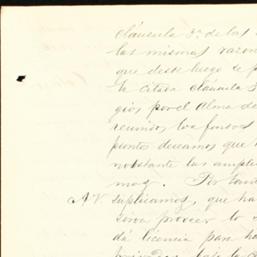 cláusula 3ª de las
las mismas razon
que desde luego se p
la citada cláusula
gios por el Alma de
reunidos los fondos
puntos deseamos que
nobstante las ampli
mos. Por tant
A V. suplicamos, que ha
sirva proveer lo
dá licencia para ha